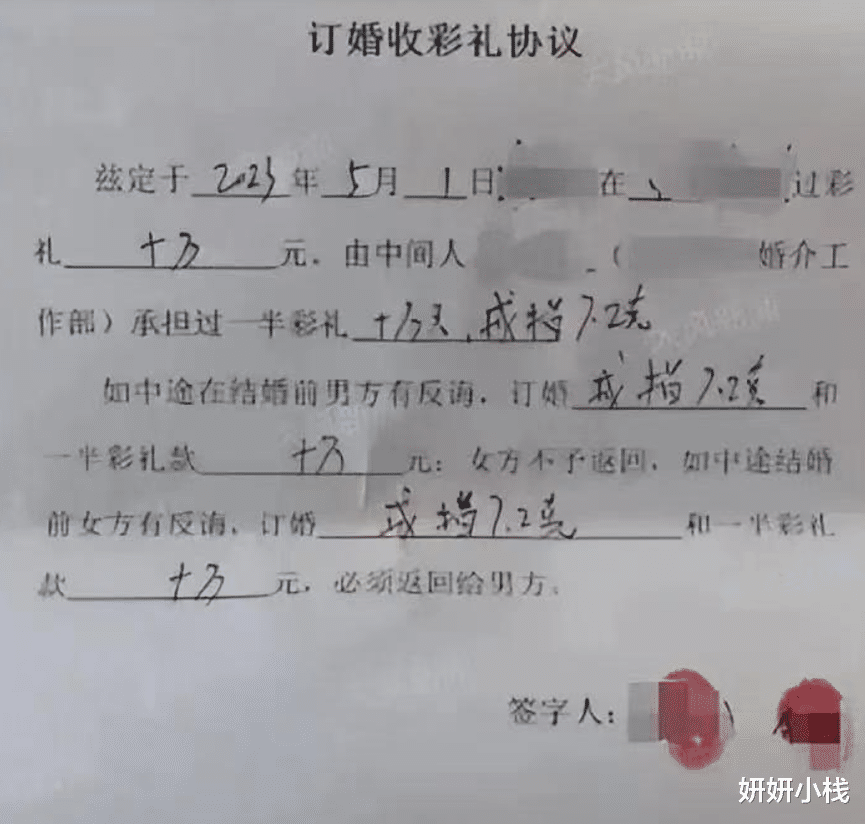 订婚收彩礼协议
兹定于2023年5月1日在过彩
礼十万元。由中间人（婚介工
作部）承担过一半彩礼十万元，戒指7.2克
如中途在结婚前男方有反诲，订婚戒指7.2克和
一半彩礼款十万元；女方不予返回，如中途结婚
前女方有反诲，订婚戒指7.2克和一半彩礼
款十万元，必须返回给男方。
签字人：
妍妍小栈